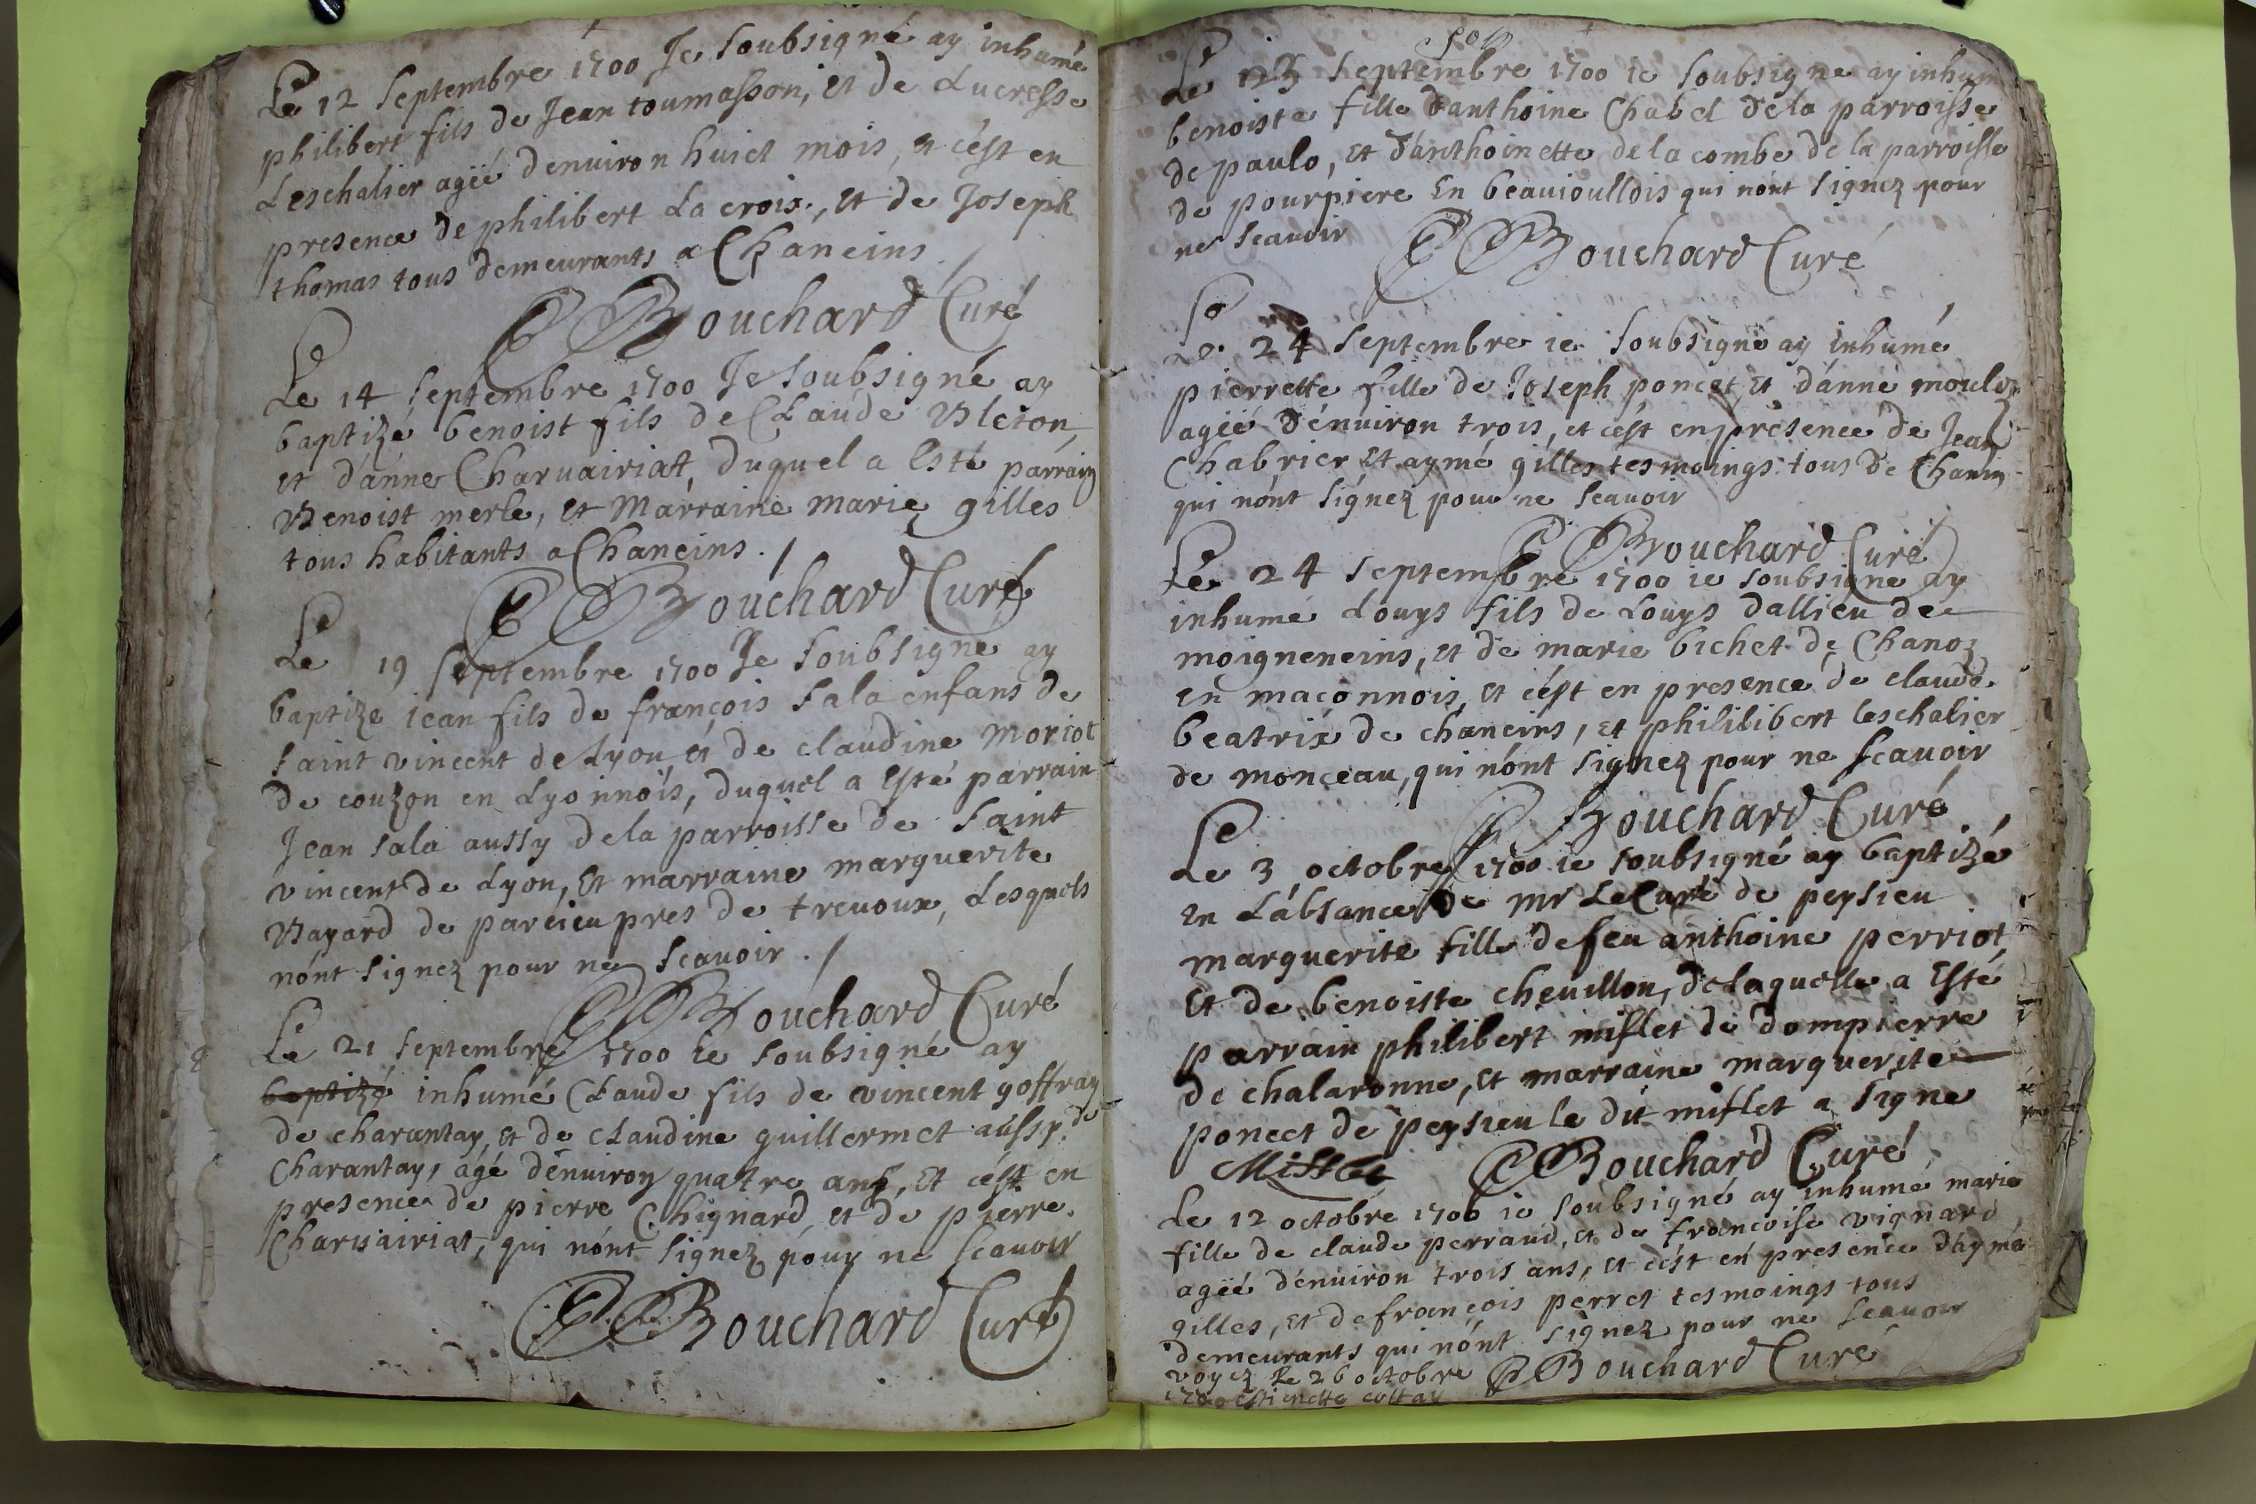 Le 12 septembre 1700 Je soubsigné ay inhumé
philibert fils de Jean toumasson, et de Lucresse
Leschalier agéé denuiron huict mois, et cést en
presence de philibert La croix, et de Joseph
thomas tous demeurants a Chaneins /
Bouchard Curé
Le 14 septembre 1700 Je soubsigné ay
baptizé benoist fils de Claude Bleton,
et dánne Charuairiat, duquel a Esté parrain
Benoist merle, et Marraine marie gilles
tous habitants a Chaneins . /
Bouchard Curé
Le 19 septembre 1700 Je soubsigné ay
baptize jean fils de françois sala enfans de
saint vincent de Lyon et de claudine moriot
de couzon en Lyonnois, duquel a Esté parrain
Jean sala aussy de la parroisse de saint
vincent de Lyon, et marraine marguerite
Bayard de parcieu pres de treuoux, Lesquels
nónt signez pour ne scauoir . /
Bouchard Curé
Le 21 septembre 1700 Ie soubsigné ay
baptizé inhumé Claude fils de vincent goffray
de charantay, et de claudine guillermet aussy de
Charantay, agé dénuiron quatre ans, et cést en
presence de pierre Chignard, et de pierre
Charuairiat, qui nónt signez pour ne scauoir
Bouchard Curé
Le 23 septembre 1700 ie soubsigne ay inhum
benoiste fille danthoine Chabet de la parroisse
de paulo, et danthoinette de la combe de la parroisse
de pourpiere En beauioullois qui nónt signez pour
ne scauoir
Bouchard Curé
Le 24 septembre ie soubsigne ay inhumé
pierrette fille de Joseph poncet, et dánne
agéé dénuiron trois, et cést en présence de Jean
Chabrier et aymé gilles tesmoings tous de Chanin
qui nónt signez pour ne scauoir
Bouchard Curé
Le 24 septembre 1700 ie soubsigne ay
inhumé Louys fils de Louys dallieu de
moigneneins, et de marie bichet de Chanoz
en maconnois, et cést en presence de claude
beatrix de chaneins, et philibert leschalier
de monceau, qui nónt signez pour ne scauoir
Bouchard Curé
Le 3 octobre 1700 ie soubsigné ay baptizé
en Lábsance de mr Le Curé de peysieu
marguerite fille de feu anthoine perriot
Et de benoiste cheuillon, de Laquelle a Esté
parrain philibert mislet de dompierre
de chalaronne, et marraine marguerite
poncet de peysieu le dit mislet a signe
Mislet Bouchard Curé
Le 12 octobre 1700 ie soubsigné ay inhumé marie
fille de claude perraud, et de francoise vignard
agéé dénuiron trois ans, et cést en presence dáymé
gilles, et de françois perret tesmoings tous
demeurants qui nónt signez pour ne scauoir
voyez Le 26 octobre Bouchard Curé
1700